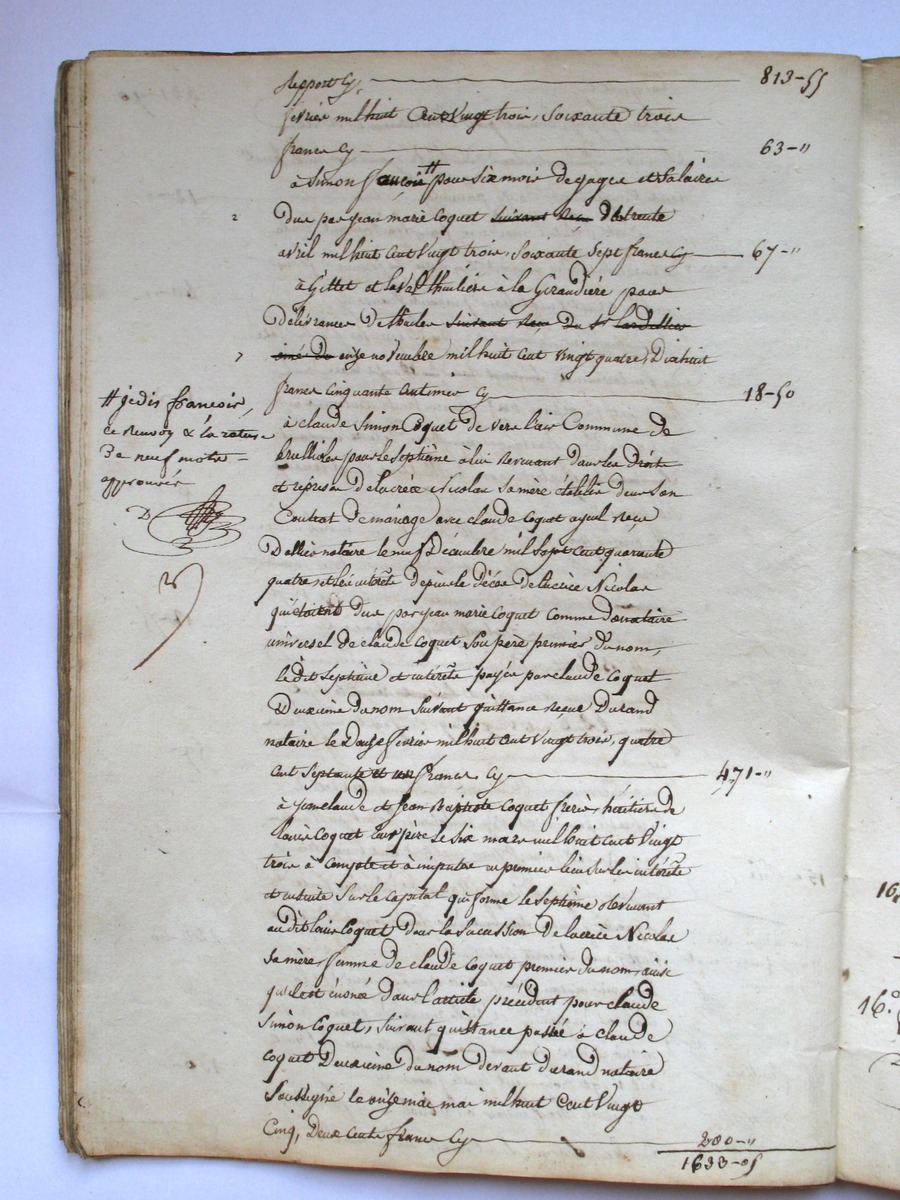 Report Cy 813-55
fevrier mil huit cent vingt trois, soixante trois
francs Cy 63-"
à Simon françois # pour six mois de gages et salaires
dus par Jean marie Coquet suivant Reçu du trente
avril mil huit cent vingt trois, soixante sept francs Cy 67-"
à Gillet et huiliers à la Giraudière pour
délivrances d'huiles suivant Reçu du Sr
ainé du onze novembre mil huit cent vingt quatre, Dix huit
francs cinquante centimes Cy 18-50
à Claude Simon Coquet de Commune de
Brullioles pour le septième à lui Revenant dans les Droits
et reprises de Lucrèce Nicolas sa mère établis dans son
Contrat de mariage avec Claude Coquet ayeul Reçu
Dallier notaire le neuf Décembre mil sept cent quarante
quatre et les intérêts depuis le décès de Lucrèce Nicolas
qui étoient dus par Jean marie Coquet comme donataire
universel de Claude Coquet son père premier du nom,
le dit septième et intérêts payés par Claude Coquet
Deuxième du nom suivant quittance reçue Durand
notaire le Douze fevrier mil huit cent vingt trois, quatre
cent septante et un francs Cy 471-"
à Jean Claude et Jean Baptiste Coquet frères, héritiers de
Louis Coquet leur père le six mars mil huit cent vingt
trois à compte et à imputer en premier lieu sur les intérêts
et ensuite sur le capital qui forme le septième Revenant
au dit Louis Coquet dans la succession de Lucrèce Nicolas
sa mère, femme de Claude Coquet premier du nom, ainsi
qu'il est énoncé dans l'article précédent pour Claude
Simon Coquet, suivant quittance passée à Claude
Coquet Deuxième du nom devant Durand notaire
soussigné le onze mai mil huit cent vingt
cinq, Deux cents francs Cy 200-"
1633-05
# je dis françois,
ce renvoi & la rature
de neuf mots
approuvés
D
16.
16.